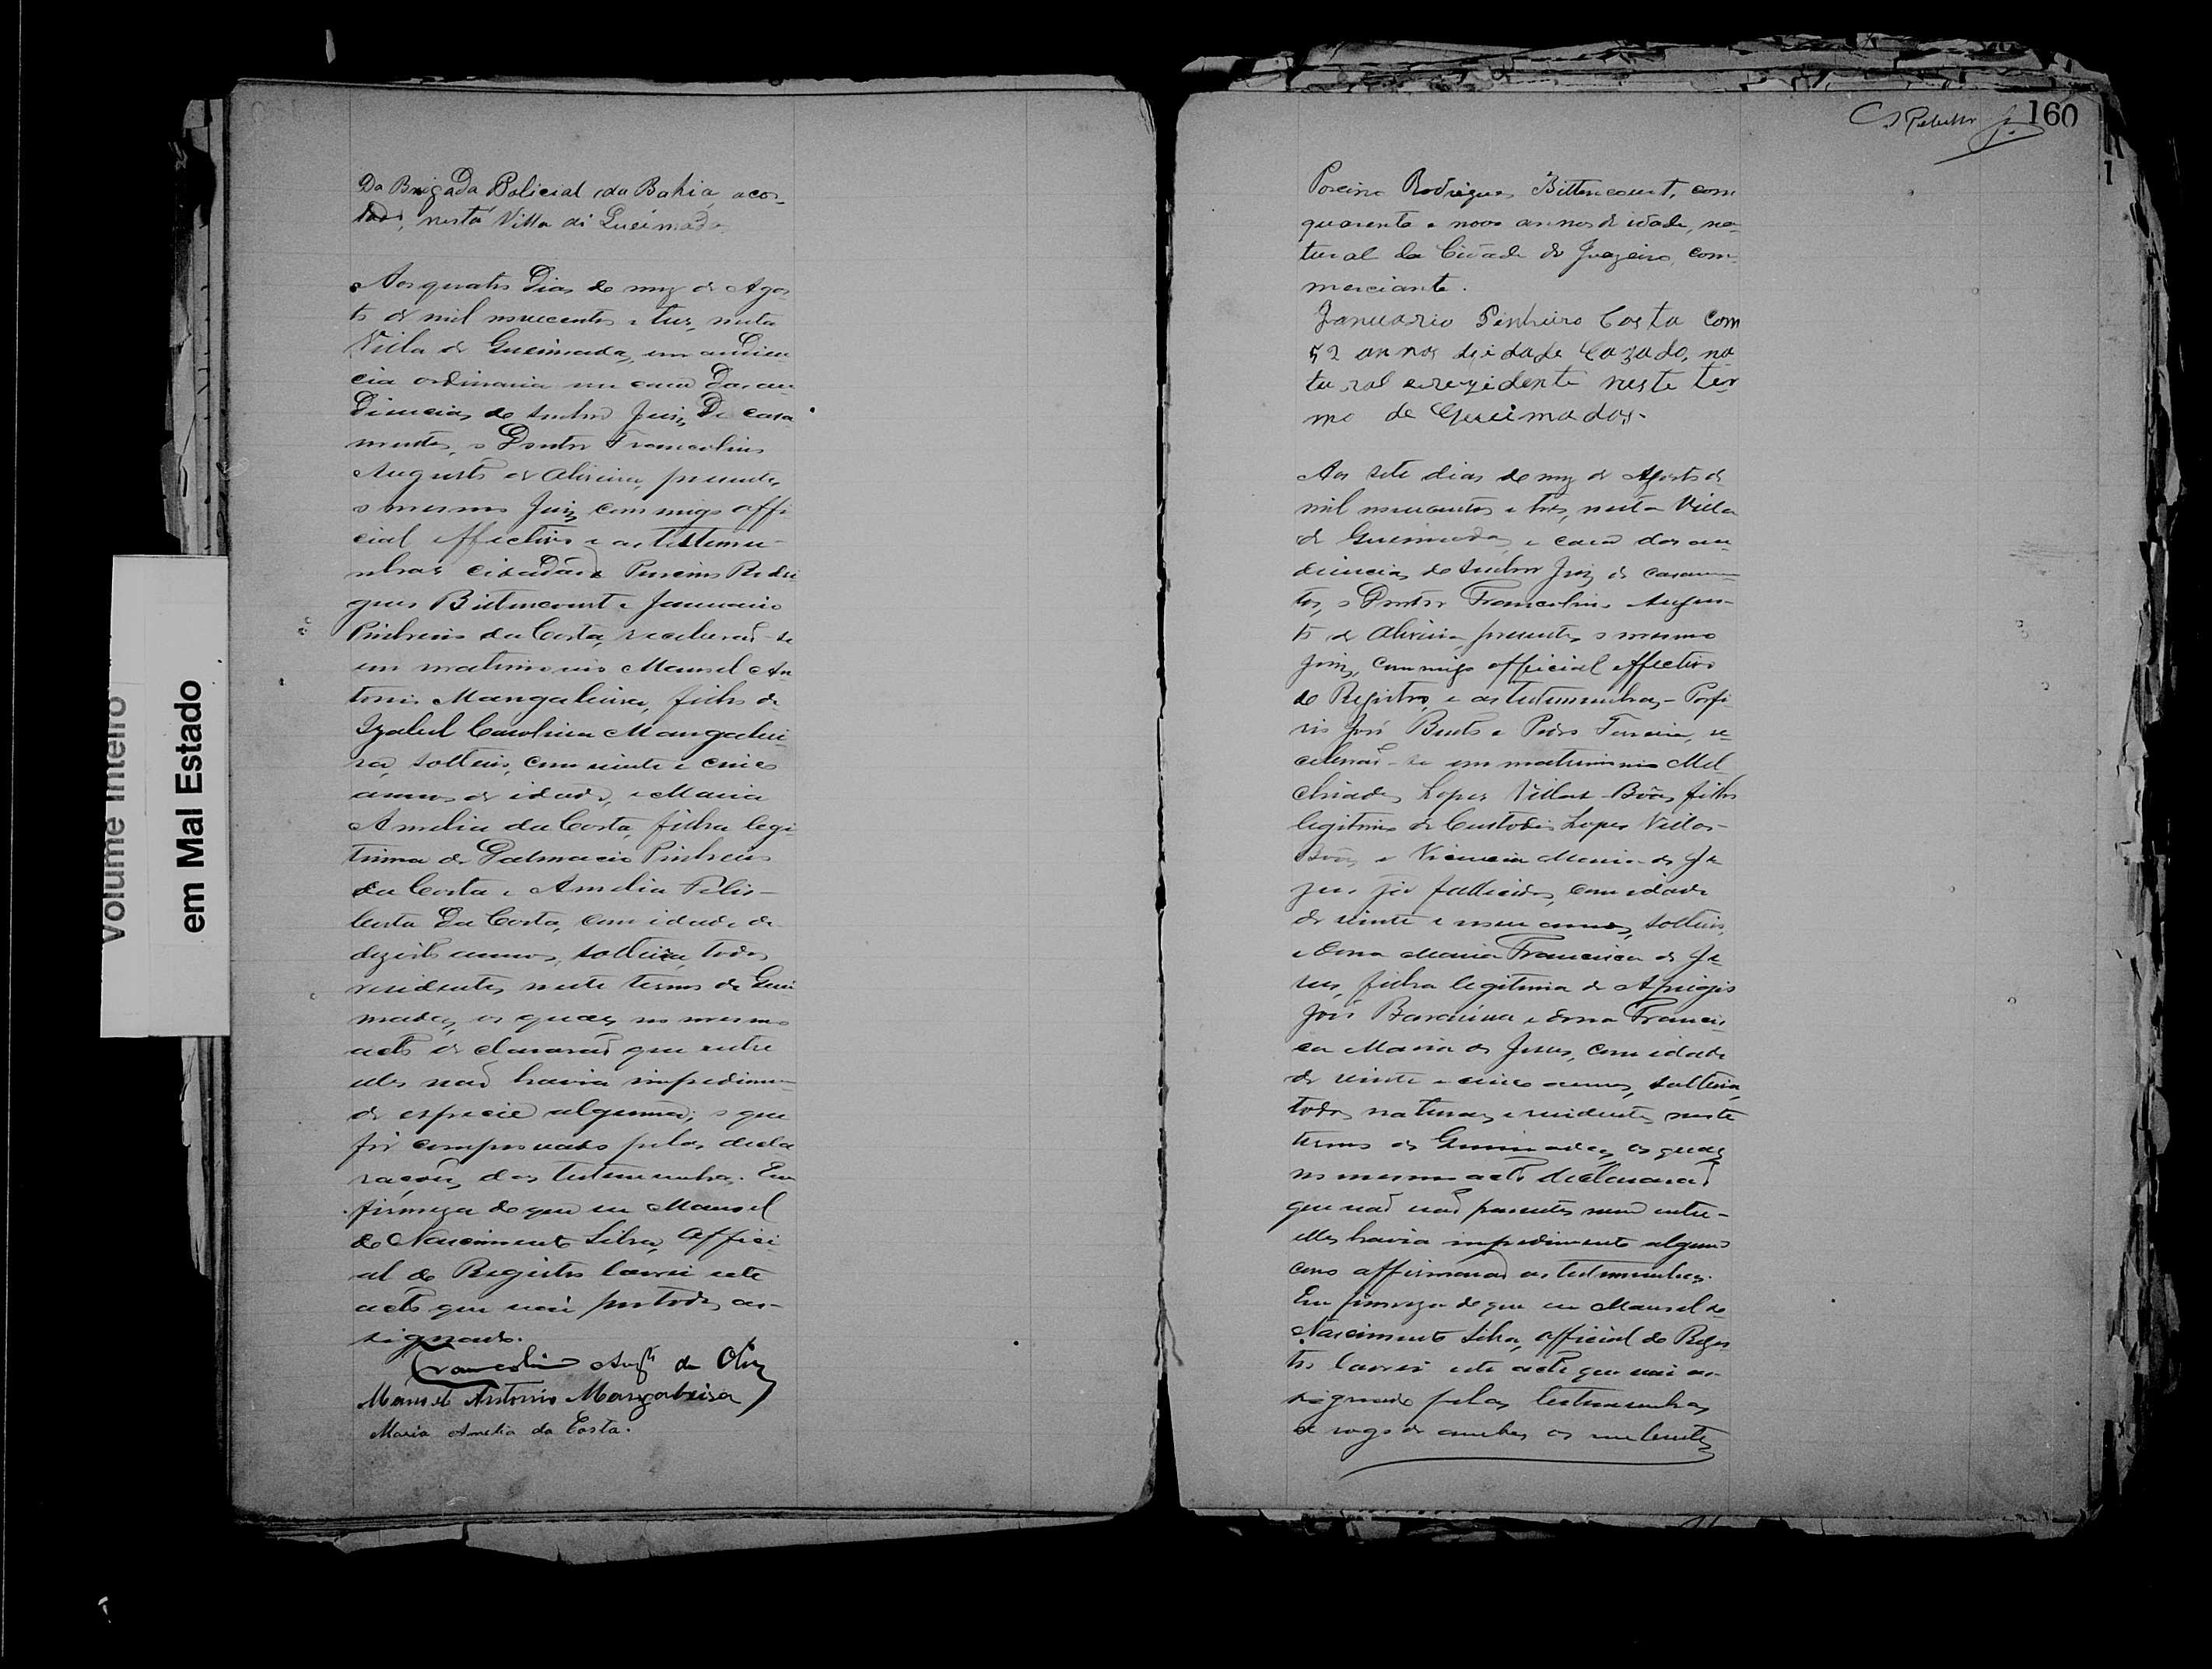 Da Brigada Policial da Bahia, acos-
tado, nesta Villa di Queimadas.
Aos quatro Dias do mez de Agos
to de mil novecentos e tres, nesta
Villa de Queimadas, em audien
cia ordinaria na casa Das au
Diencias do senhor Juiz De casa
mentos, o Doutor Francolino
Augusto de Oliveira, presente
o mesmo Juiz, commigo offi
cial effectivo e as testemu-
nhas cidadãos Porcino Rodri
gues Bittencourt e Januario
Pinheiro da Costa, receberaõ-se
em matrimonio Manoel An
tonio Mangabeira, filho de
Izabel Carolina Mangabei
ra, solteiro, com vinte e cinco
annos de idade, e Maria
Amelia da Costa, filha legi
tima de Dalmacio Pinheiro
da Costa e Amelia Felis-
berta Da Costa, com idade de
dezoito annos, solteira, todos
residentes neste termo de Quei
madas, os quaes no mesmo
acto declararaõ que entre
elles naõ havia impedimen
de especie alguma; o que
foi comprovado pelas decla
rações das testemunhas. Em
firmeza do que eu Manoel
do Nascimento Silva, Offici
al do Registro lavrei este
acto que vai por todos as-
signado.
Francolino Augto de Olivra
Manoel Antonio Mangabeira
Maria Amelia da Costa.
160
Porcino Rodrigues Bittencourt, com
quarenta e nove annos de idade, na-
tural da Cidade de Juazeiro, com-
merciante.
Januario Pinheiro Costa com
52 annos de idade Cazado, na
tural e rezidente neste ter
mo de Queimados-
Aos sete dias do mez de Agosto de
mil novecentos e tres, nesta Villa
de Queimadas, e casa das au-
diencias do senhor Juiz de casamen-
tos, o Doutor Francolino Augus-
to de Oliveira, presente o mesmo
Juiz, commigo official effectivo
do Registro, e as testemunhas - Porfi
rio José Bento e Pedro Ferreira, re-
ceberaõ-se em matrimonio Mel
chiades Lopes Villas-Bôas, filho
legitimo de Custodio Lopes Villas-
Bôas e Vicencia Maria de Je
zus, já fallecidos, com idade
de vinte e nove annos, solteiro,
e Dona Maria Francisca de Je
sus, filha legitima de Aprigio
José Barauna e Dona Francis
ca Maria de Jesus, com idade
de vinte e cinco annos, solteira,
todos naturaes e residentes neste
termo de Queimadas, os quaes
no mesmo acto declararaõ
que naõ saõ parentes nem entre-
elles havia impedimento algum
como affirmaraõ as testemunhas.
Em firmeza do que eu Manoel do
Nascimento Silva, official do Regis
tro lavrei este acto que vai as-
signado pelas testemunhas
a rogo de ambos os nubentes
Volume Inteiro
em Mal Estado